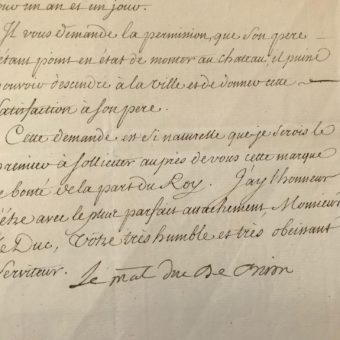 pour un an et un jour.
Il vous demande la permission, que son pere
étant point en état de monter au chateau, il puisse
pouvoir descendre à la ville et de donner cette
satisfaction à son pere.
Cette demande est si naturelle que je serois le
premier à solliciter auprès de vous cette marque
de bonté de la part du Roy. J'ay l'honneur
d'être avec le plus parfait attachement, Monsieur
le Duc, Votre très humble et très obeissant
Serviteur. Le mal duc De Biron